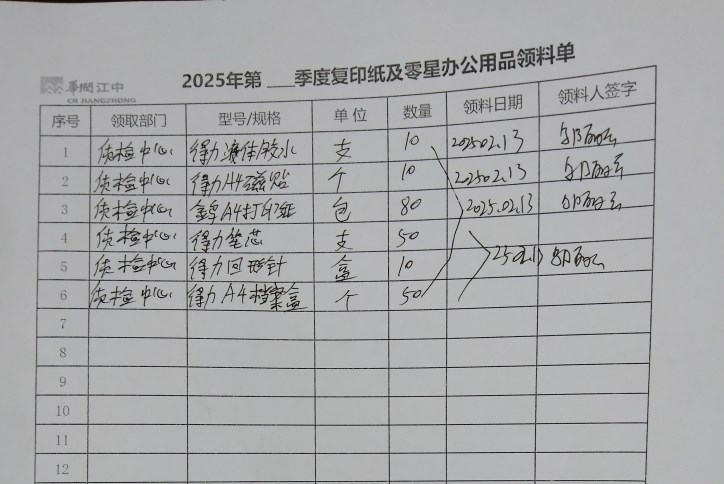 華潤江中
CR JIANGZHONG
2025年第___季度复印纸及零星办公用品领料单
序号 领取部门 型号/规格 单位 数量 领料日期 领料人签字
1 质检中心 得力液体胶水 支 10 2025.02.13
2 质检中心 得力A4磁贴 个 10 2025.02.13
3 质检中心 A4打印纸 包 80 2025.02.13
4 质检中心 得力笔芯 支 50
5 质检中心 得力回形针 盒 10 25.02.13
6 质检中心 得力A4档案盒 个 50
7
8
9
10
11
12